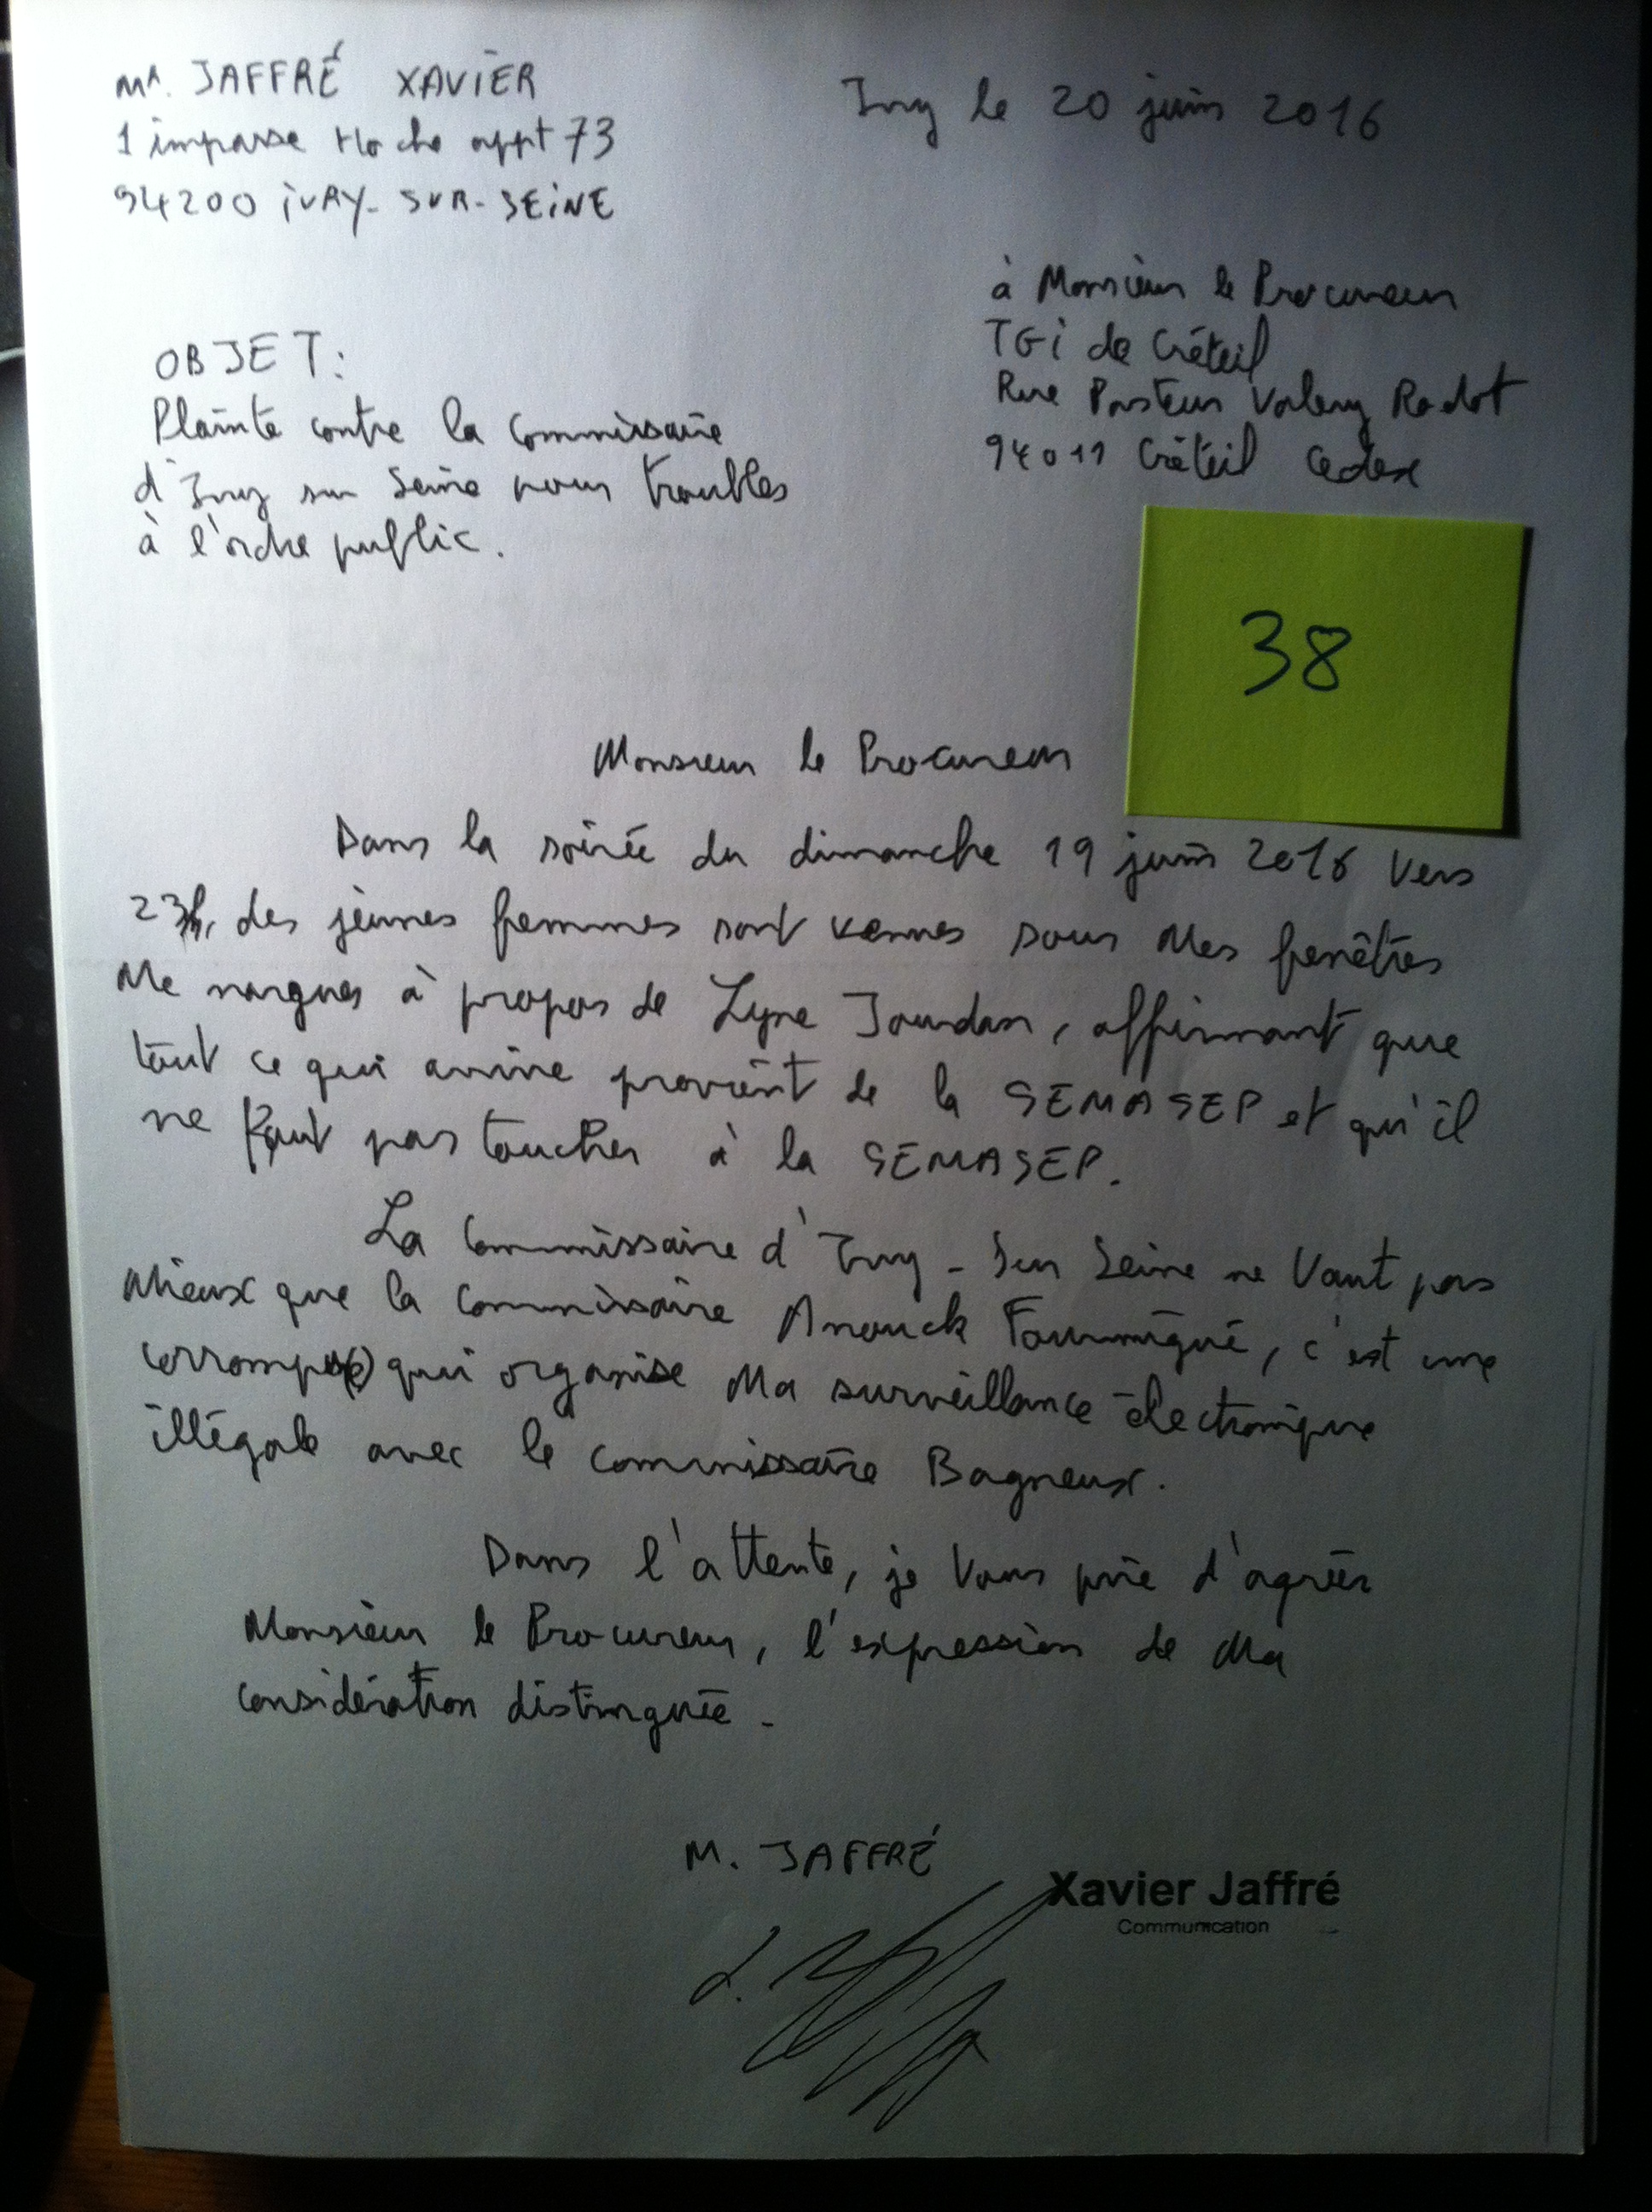 Mr. JAFFRÉ XAVIER
1 impasse Hoche appt 73
94200 iVRY-SUR-SEiNE
Ivry le 20 juin 2016
à Monsieur le Procureur
TGi de Créteil
Rue Pasteur Valery Radot
94011 Créteil Cedex
OBJET:
Plainte contre la Commissaire
d'Ivry sur Seine pour troubles
à l'ordre public.
38
Monsieur le Procureur
Dans la soirée du dimanche 19 juin 2016 vers
23h, des jeunes femmes sont venues sous mes fenêtres
me narguer à propos de Lyne Jourdan, affirmant que
tout ce qui arrive provient de la SEMASEP et qu'il
ne faut pas toucher à la SEMASEP.
La Commissaire d'Ivry-sur Seine ne vaut pas
mieux que la Commissaire Anouck Fourmigué, c'est une
corrompu(e) qui organise ma surveillance électronique
illégale avec le commissaire Bagneux.
Dans l'attente, je vous prie d'agréer
Monsieur le Procureur, l'expression de ma
considération distinguée.
M. JAFFRÉ
Xavier Jaffré
Communication